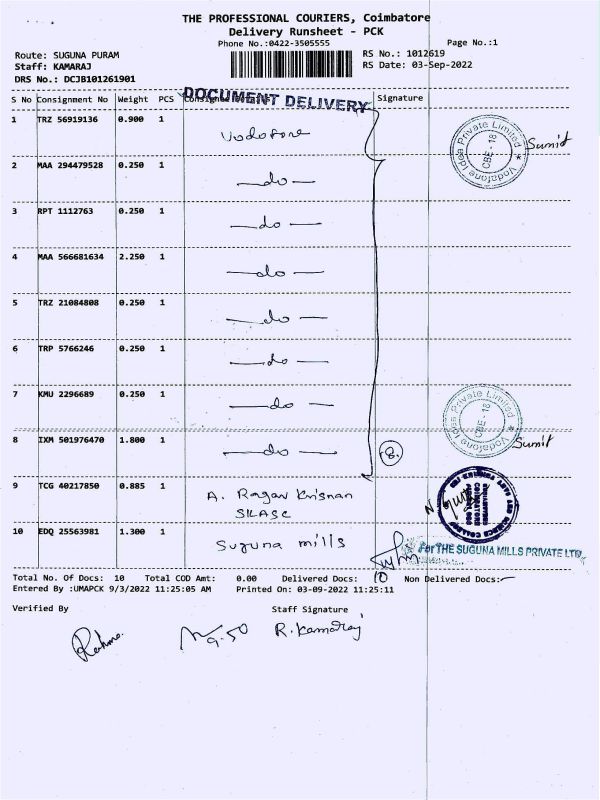 THE PROFESSIONAL COURIERS, Coimbatore
Delivery Runsheet - PCK
Phone No.:0422-3505555
Page No.:1
Route: SUGUNA PURAM
RS No.: 1012619
Staff: KAMARAJ
RS Date: 03-Sep-2022
DRS No.: DCJB101261901
DOCUMENT DELIVERY
S No Consignment No Weight PCS Signature
1 TRZ 56919136 0.900 1 Vodafone
Vodafone Idea Private Limited
CBE - 18
Sumit
2 MAA 294479528 0.250 1 —do—
3 RPT 1112763 0.250 1 —do—
4 MAA 566681634 2.250 1 —do—
5 TRZ 21084808 0.250 1 —do—
6 TRP 5766246 0.250 1 —do—
7 KMU 2296689 0.250 1 —do—
Vodafone Idea Private Limited
CBE - 18
Sumit
8 IXM 501976470 1.800 1 —do— 8
9 TCG 40217850 0.885 1 A. Ragav Krisnan
SKASC
10 EDQ 25563981 1.300 1 Suguna mills
For THE SUGUNA MILLS PRIVATE LTD
Total No. Of Docs: 10 Total COD Amt: 0.00 Delivered Docs: 10 Non Delivered Docs:
Entered By :UMAPCK 9/3/2022 11:25:05 AM Printed On: 03-09-2022 11:25:11
Verified By Staff Signature
9.50 R.Kamaraj